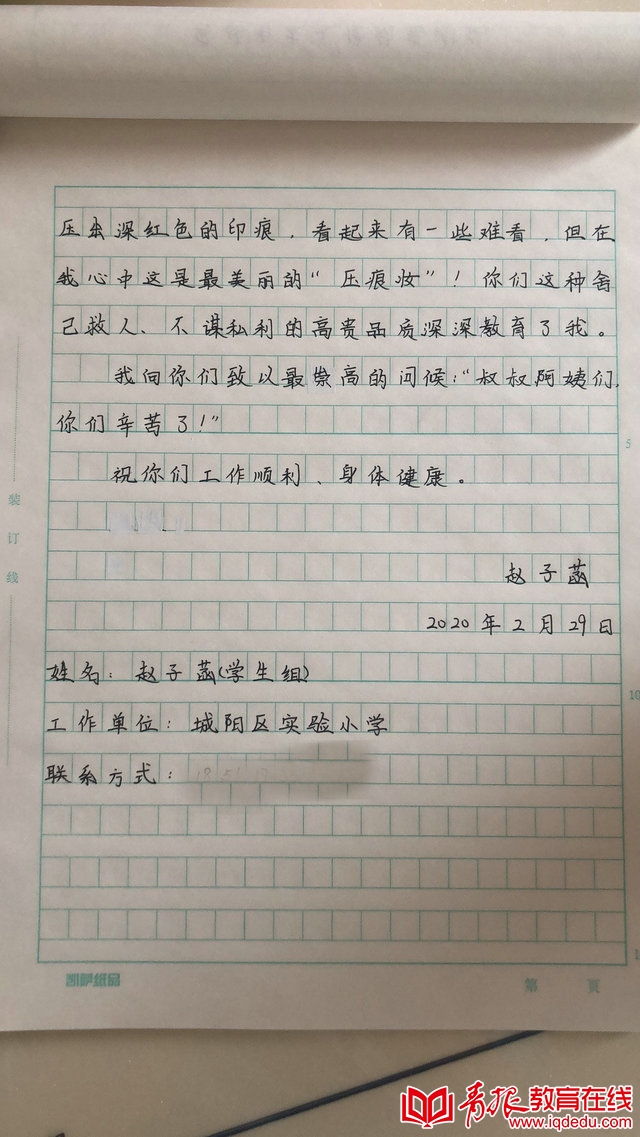 压出深红色的印痕，看起来有一些难看，但在
我心中这是最美丽的“压痕妆”！你们这种舍
己救人、不谋私利的高贵品质深深教育了我。
我向你们致以最崇高的问候：“叔叔阿姨们，
你们辛苦了！”
祝你们工作顺利、身体健康。
赵子菡
2020年2月29日
姓名：赵子菡(学生组)
工作单位：城阳区实验小学
联系方式：
装订线
5
10
凯萨纸品
第 頁
青报教育在线
www.iqdedu.com